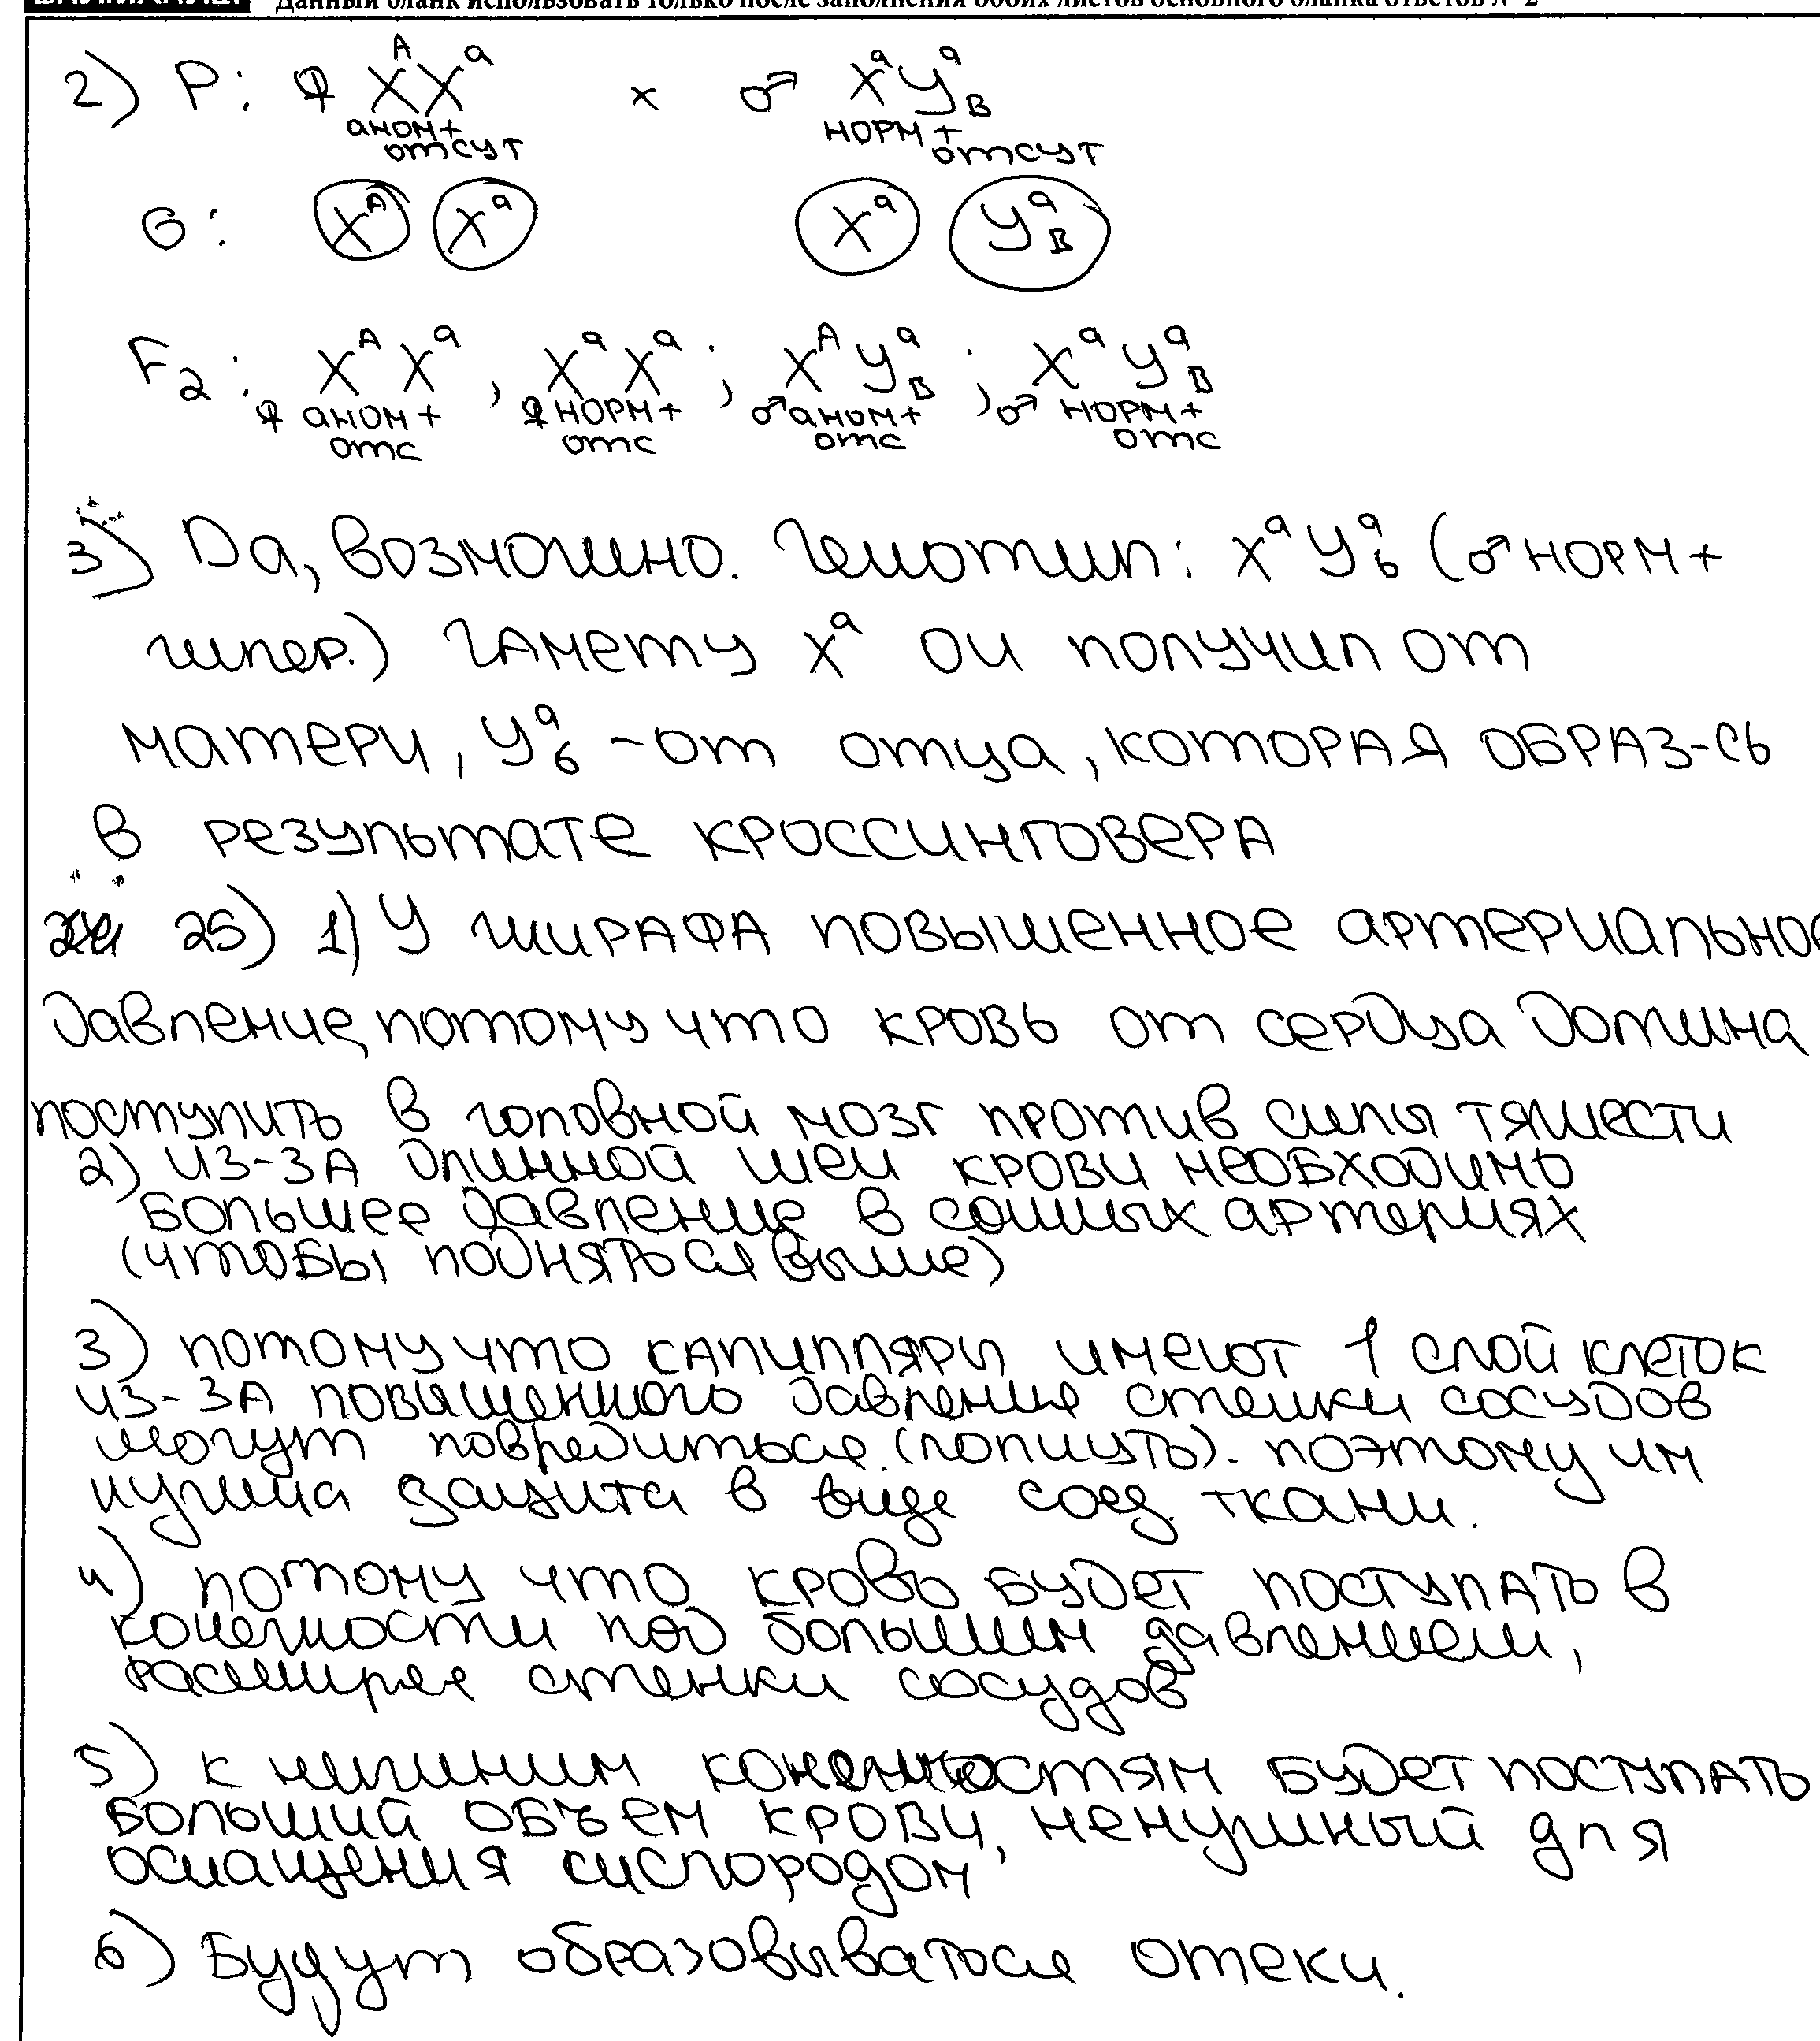 Данный бланк использовать только после заполнения обоих листов основного бланка ответов № 2
2) P: ♀ XᴬXᵃ × ♂ XᵃYᵃ_B
аном+ отсут норм+ отсут
G: Xᴬ Xᵃ Xᵃ Yᵃ_B
F₂: XᴬXᵃ, XᵃXᵃ; XᴬYᵃ_B; XᵃYᵃ_B
♀ аном+ отс ♀ норм+ отс ♂ аном+ отс ♂ норм+ отс
3) Да, возможно. Генотип: XᵃYᵃ_b (♂ норм+
гипер.) Гамету Xᵃ он получил от
матери, Yᵃ_b - от отца, которая образ-сь
в результате кроссинговера
25) 1) У жирафа повышенное артериальное
давление, потому что кровь от сердца должна
поступить в головной мозг против силы тяжести
2) из-за длинной шеи крови необходимо
большее давление в сонных артериях
(чтобы подняться выше)
3) потому что капилляры имеют 1 слой клеток
из-за повышенного давления стенки сосудов
могут повредиться (лопнуть). поэтому им
нужна защита в виде соед. ткани.
4) потому что кровь будет поступать в
конечности под большим давлением,
расширяя стенки сосудов
5) к нижним конечностям будет поступать
больший объем крови, ненужный для
оснащения кислородом
6) Будут образовываться отеки.